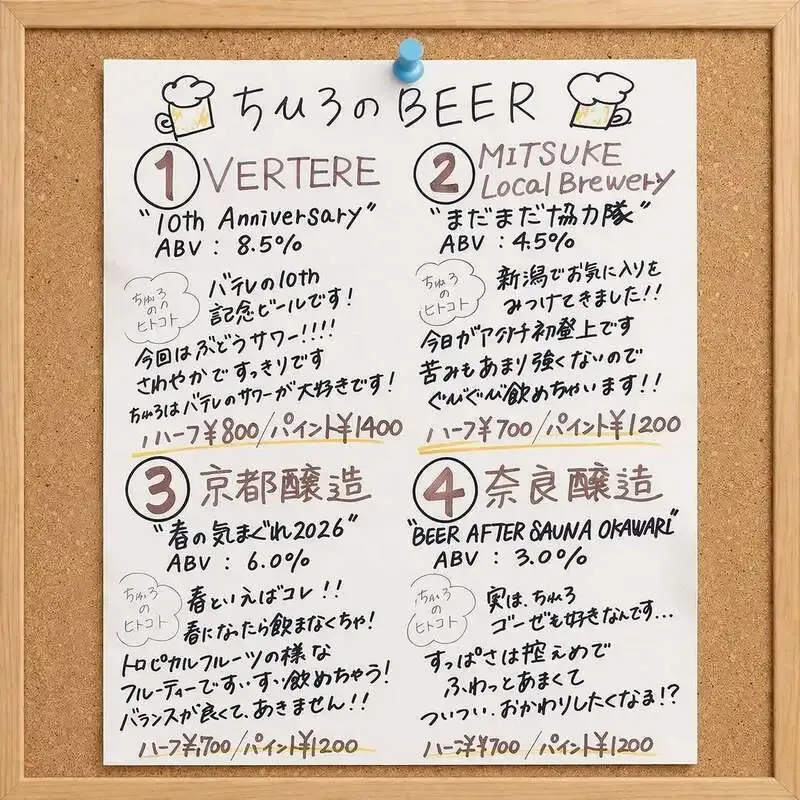 ちひろのBEER
1 VERTERE
"10th Anniversary"
ABV : 8.5%
ちひろ
の
ヒトコト
バテレの10th
記念ビールです!
今回はぶどうサワー!!!!
さわやかですっきりです
ちひろはバテレのサワーが大好きです!
ハーフ¥800/パイント¥1400
2 MITSUKE
Local Brewery
"まだまだ協力隊"
ABV : 4.5%
ちひろ
の
ヒトコト
新潟でお気に入りを
みつけてきました!!
今日が初登上です
苦みもあまり強くないので
ぐびぐび飲めちゃいます!!
ハーフ¥700/パイント¥1200
3 京都醸造
"春の気まぐれ2026"
ABV : 6.0%
ちひろ
の
ヒトコト
春といえばコレ!!
春になったら飲まなくちゃ!
トロピカルフルーツの様な
フルーティーですいすい飲めちゃう!
バランスが良くて、あきません!!
ハーフ¥700/パイント¥1200
4 奈良醸造
"BEER AFTER SAUNA OKAWARI"
ABV : 3.0%
ちひろ
の
ヒトコト
実は、ちひろ
ゴーゼも好きなんです...
すっぱさは控えめで
ふわっとあまくて
ついつい、おかわりしたくなる!?
ハーフ¥700/パイント¥1200